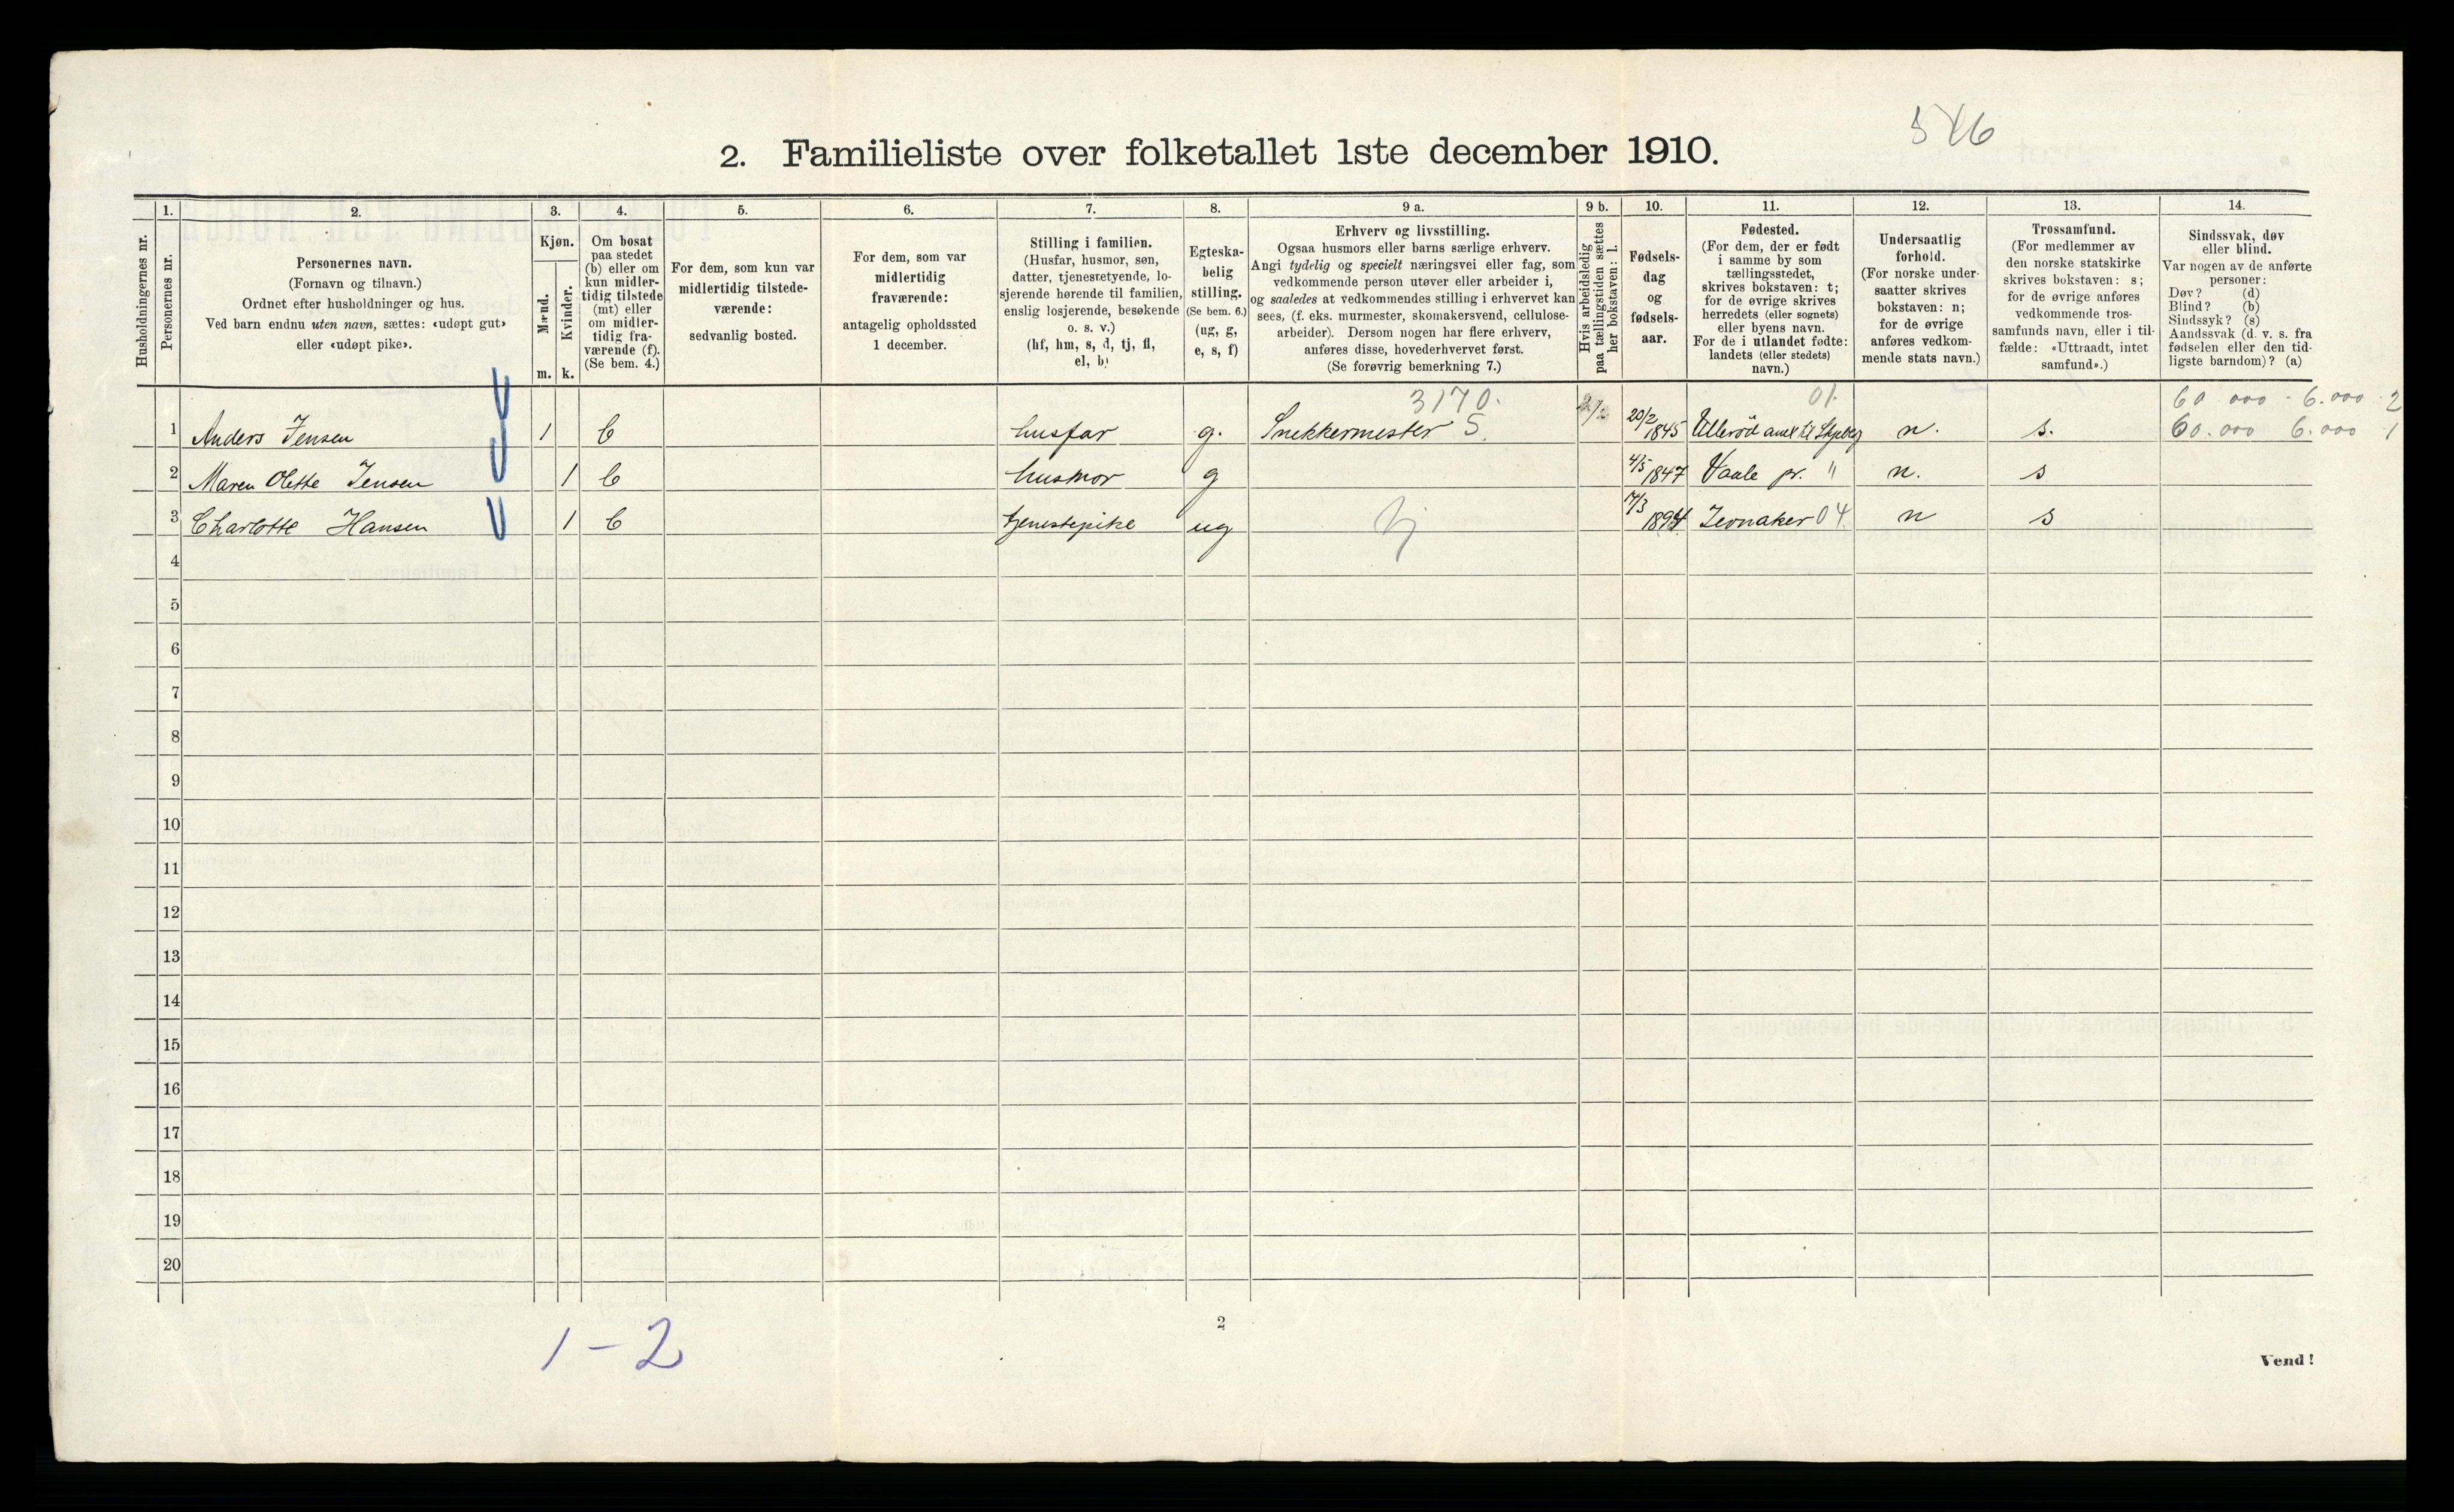 546
2. Familieliste over folketallet 1ste december 1910.
Husholdningernes nr.
1.
Personernes nr.
2.
Personernes navn.
(Fornavn og tilnavn.)
Ordnet efter husholdninger og hus.
Ved barn endnu uten navn, sættes: «udøpt gut»
eller «udøpt pike».
3.
Kjøn.
Mænd.
Kvinder.
m. k.
4.
Om bosat
paa stedet
(b) eller om
kun midler-
tidig tilstede
(mt) eller
om midler-
tidig fra-
værende (f).
(Se bem. 4.)
5.
For dem, som kun var
midlertidig tilstede-
værende:
sedvanlig bosted.
6.
For dem, som var
midlertidig
fraværende:
antagelig opholdssted
1 december.
7.
Stilling i familien.
(Husfar, husmor, søn,
datter, tjenestetyende, lo-
sjerende hørende til familien,
enslig losjerende, besøkende
o. s. v.)
(hf, hm, s, d, tj, fl,
el, b)
8.
Egteska-
belig
stilling.
(Se bem. 6.)
(ug, g,
e, s, f)
9 a.
Erhverv og livsstilling.
Ogsaa husmors eller barns særlige erhverv.
Angi tydelig og specielt næringsvei eller fag, som
vedkommende person utøver eller arbeider i,
og saaledes at vedkommendes stilling i erhvervet kan
sees, (f. eks. murmester, skomakersvend, cellulose-
arbeider). Dersom nogen har flere erhverv,
anføres disse, hovederhvervet først.
(Se forøvrig bemerkning 7.)
9 b.
Hvis arbeidsledig
paa tællingstiden sættes
her bokstaven: l.
10.
Fødsels-
dag
og
fødsels-
aar.
11.
Fødested.
(For dem, der er født
i samme by som
tællingsstedet,
skrives bokstaven: t;
for de øvrige skrives
herredets (eller sognets)
eller byens navn.
For de i utlandet fødte:
landets (eller stedets)
navn.)
12.
Undersaatlig
forhold.
(For norske under-
saatter skrives
bokstaven: n;
for de øvrige
anføres vedkom-
mende stats navn.)
13.
Trossamfund.
(For medlemmer av
den norske statskirke
skrives bokstaven: s;
for de øvrige anføres
vedkommende tros-
samfunds navn, eller i til-
fælde: «Uttraadt, intet
samfund».)
14.
Sindssvak, døv
eller blind.
Var nogen av de anførte
personer:
Døv? (d)
Blind? (b)
Sindssyk? (s)
Aandssvak (d. v. s. fra
fødselen eller den tid-
ligste barndom)? (a)
3170. 01. 60 000 - 6.000 - 2
1 Anders Jensen 1 b husfar g. Snekkermester S. 20/2 1845 Ulleröd anex til Skjeberg n. s. 60.000 6.000 1
2 Maren Olette Jensen 1 b husmor g 4/5 1847 Vaale pr. " n. s
3 Charlotte Hansen 1 b tjenestepike ug tj 7/3 1894 Jevnaker 04. n s
4
5
6
7
8
9
10
11
12
13
14
15
16
17
18
19
20
1 - 2
2
Vend!